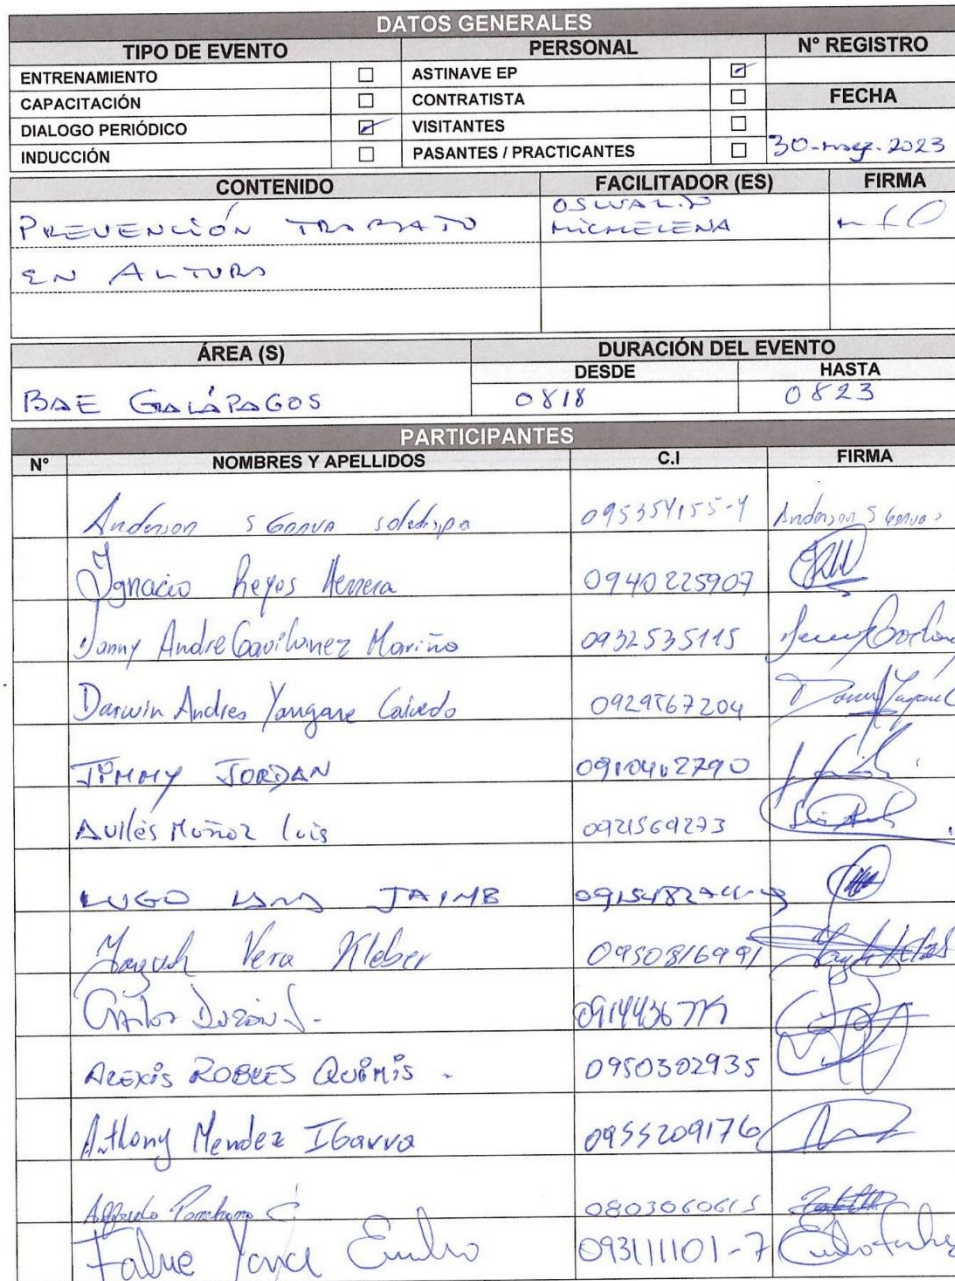 DATOS GENERALES
TIPO DE EVENTO PERSONAL N° REGISTRO
ENTRENAMIENTO ASTINAVE EP
CAPACITACIÓN CONTRATISTA FECHA
DIALOGO PERIÓDICO VISITANTES
INDUCCIÓN PASANTES / PRACTICANTES 30-mar-2023
CONTENIDO FACILITADOR (ES) FIRMA
PREVENCIÓN TRABAJO OSWALDO
MICHELENA
EN ALTURA
ÁREA (S) DURACIÓN DEL EVENTO
DESDE HASTA
BAE GALÁPAGOS 0818 0823
PARTICIPANTES
N° NOMBRES Y APELLIDOS C.I FIRMA
Anderson 095354155-4 Anderson
Ignacio Reyes Herrera 0940225907
Andre Gavilanez Mariño 0932535115
Darwin Andres Yangane Caicedo 0929567204
JIMMY JORDAN 0910462790
Avilés Muñoz Luis 0921569273
LUGO JAIME
Vera Kleber 0950816991
Carlos
ALEXIS ROBLES QUIMIS . 0950302935
Anthony Mendez Ibarra 0955209176
Alfredo 0803060615
Emilio 093111101-7